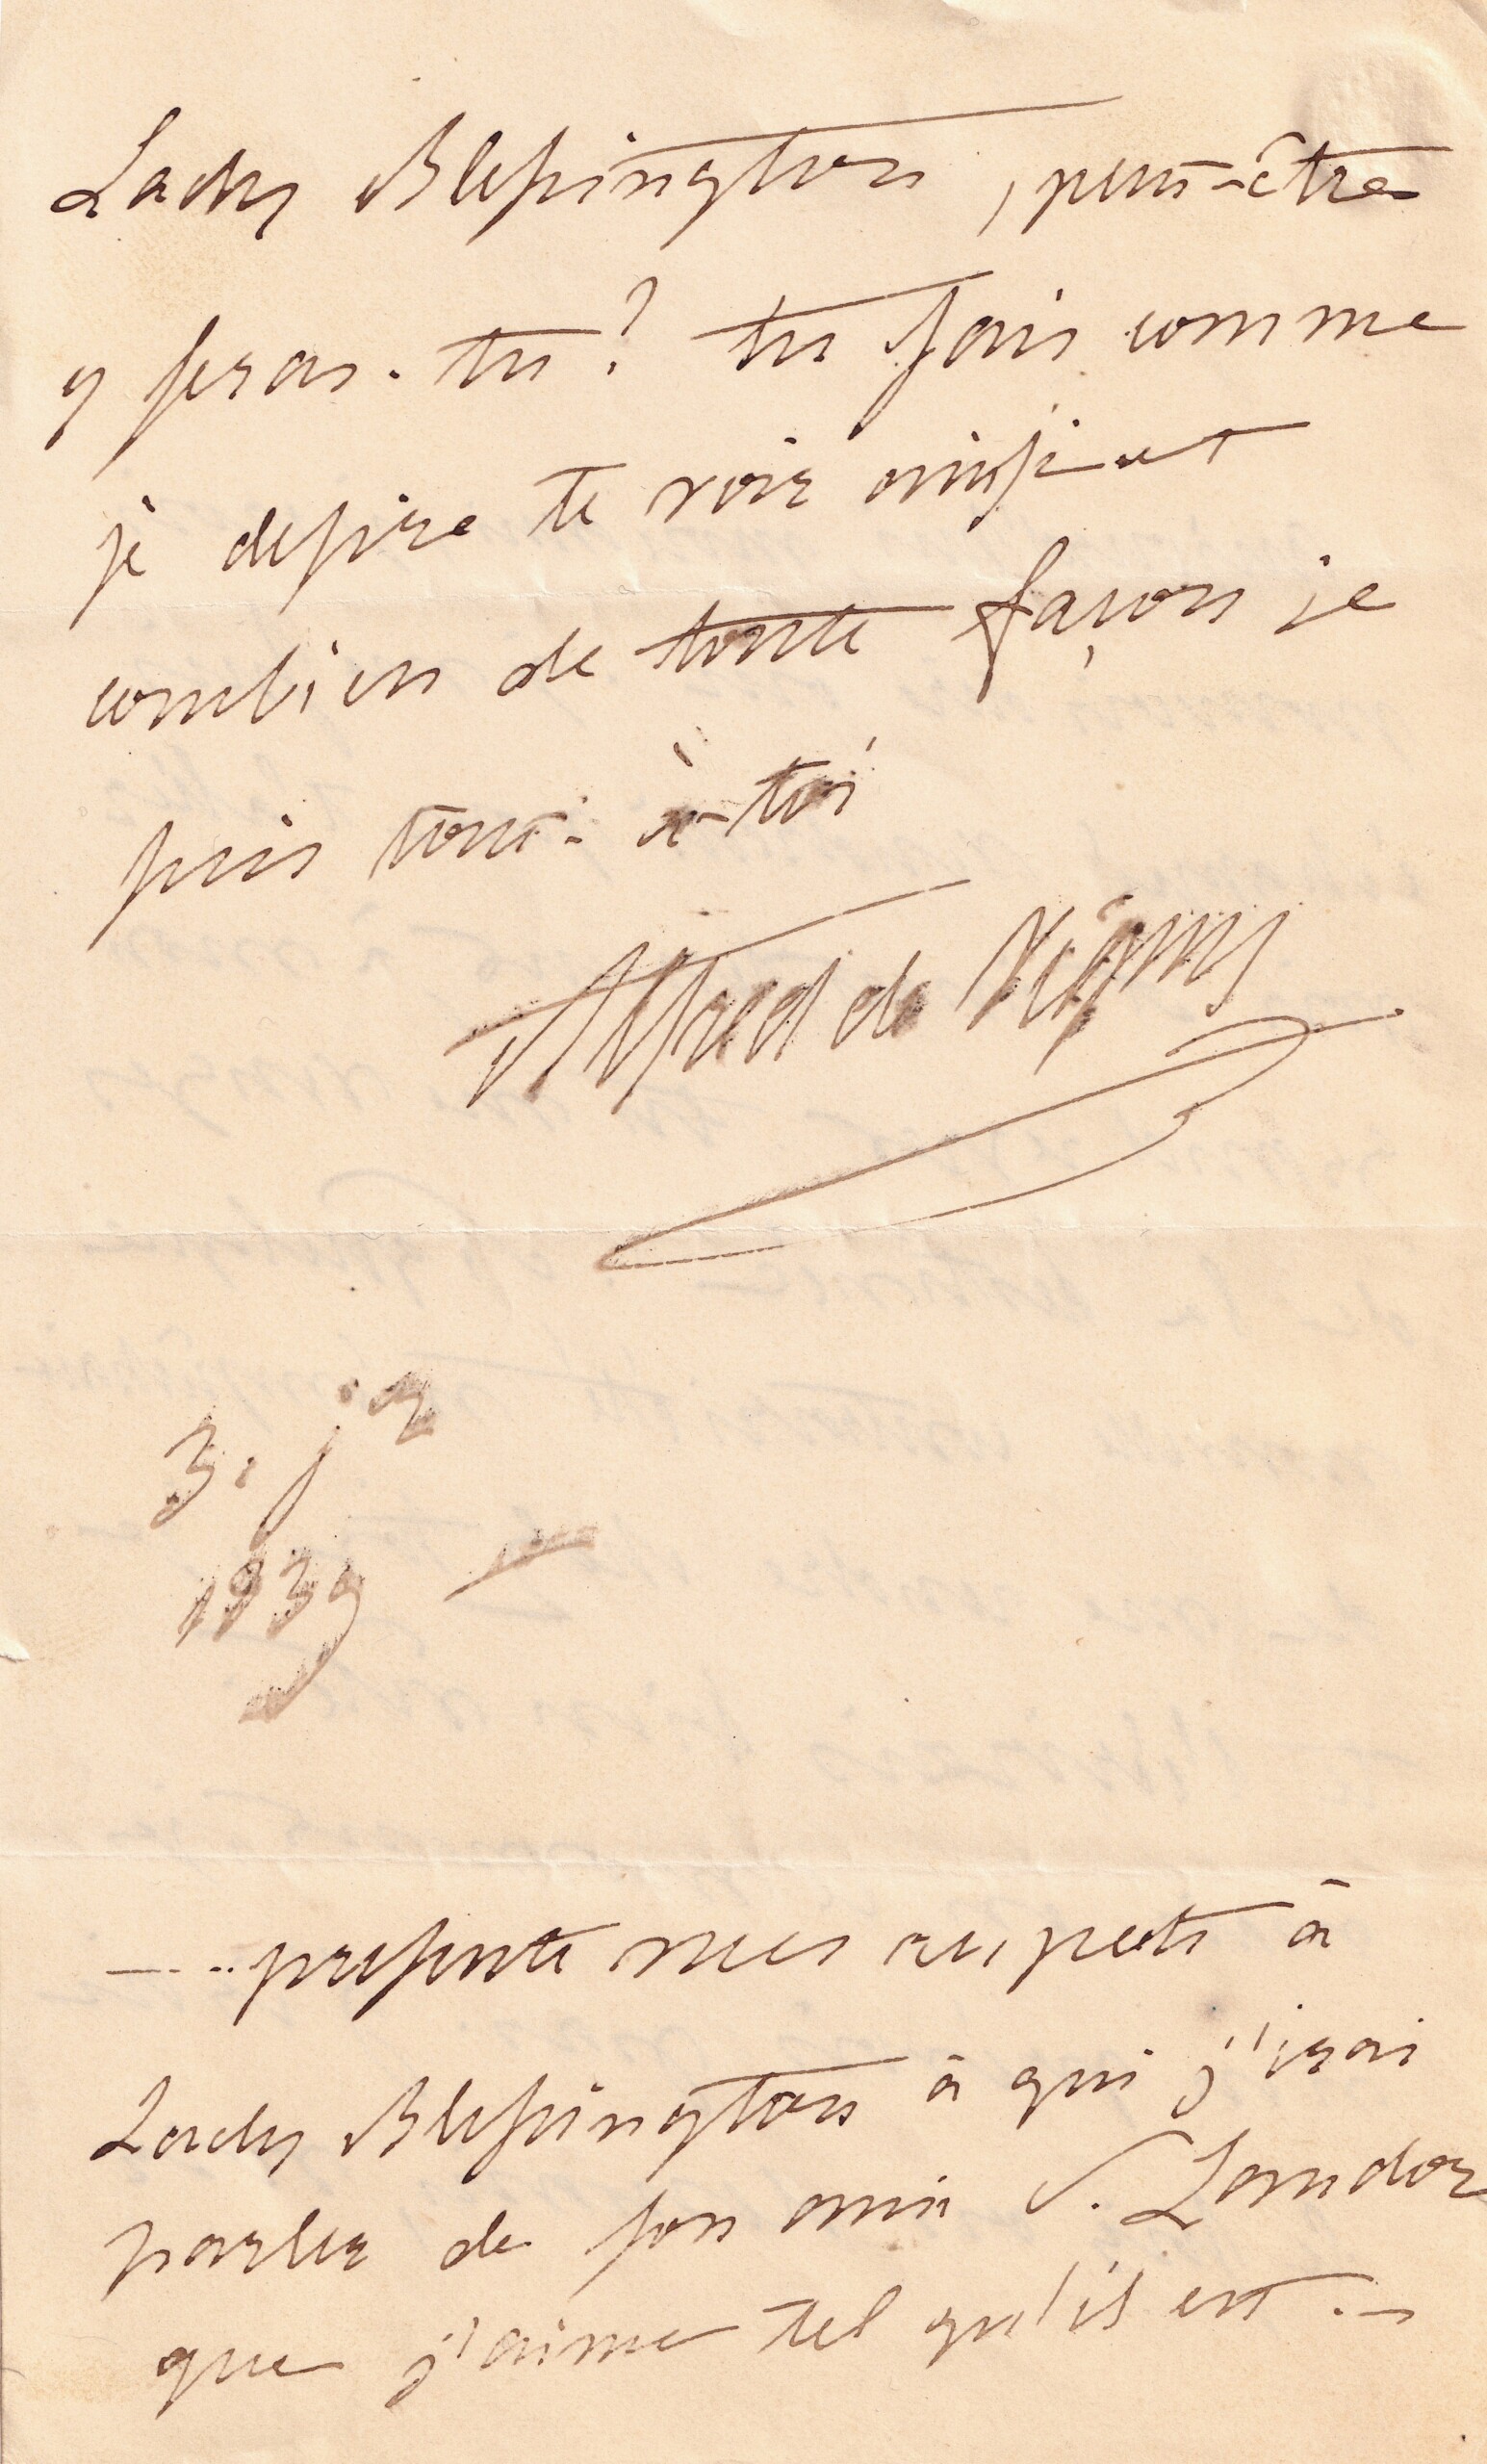 Lady Blessington, peut-être
y seras-tu? tu sais comme
je desire te voir ainsi et
combien de toute façon je
suis tout-à-toi
Alfred de Vigny
3. jr
1839 —
—...presente mes respects à
Lady Blessington à qui j'irai
parler de son ami S. Landor
que j'aime tel qu'il est.—